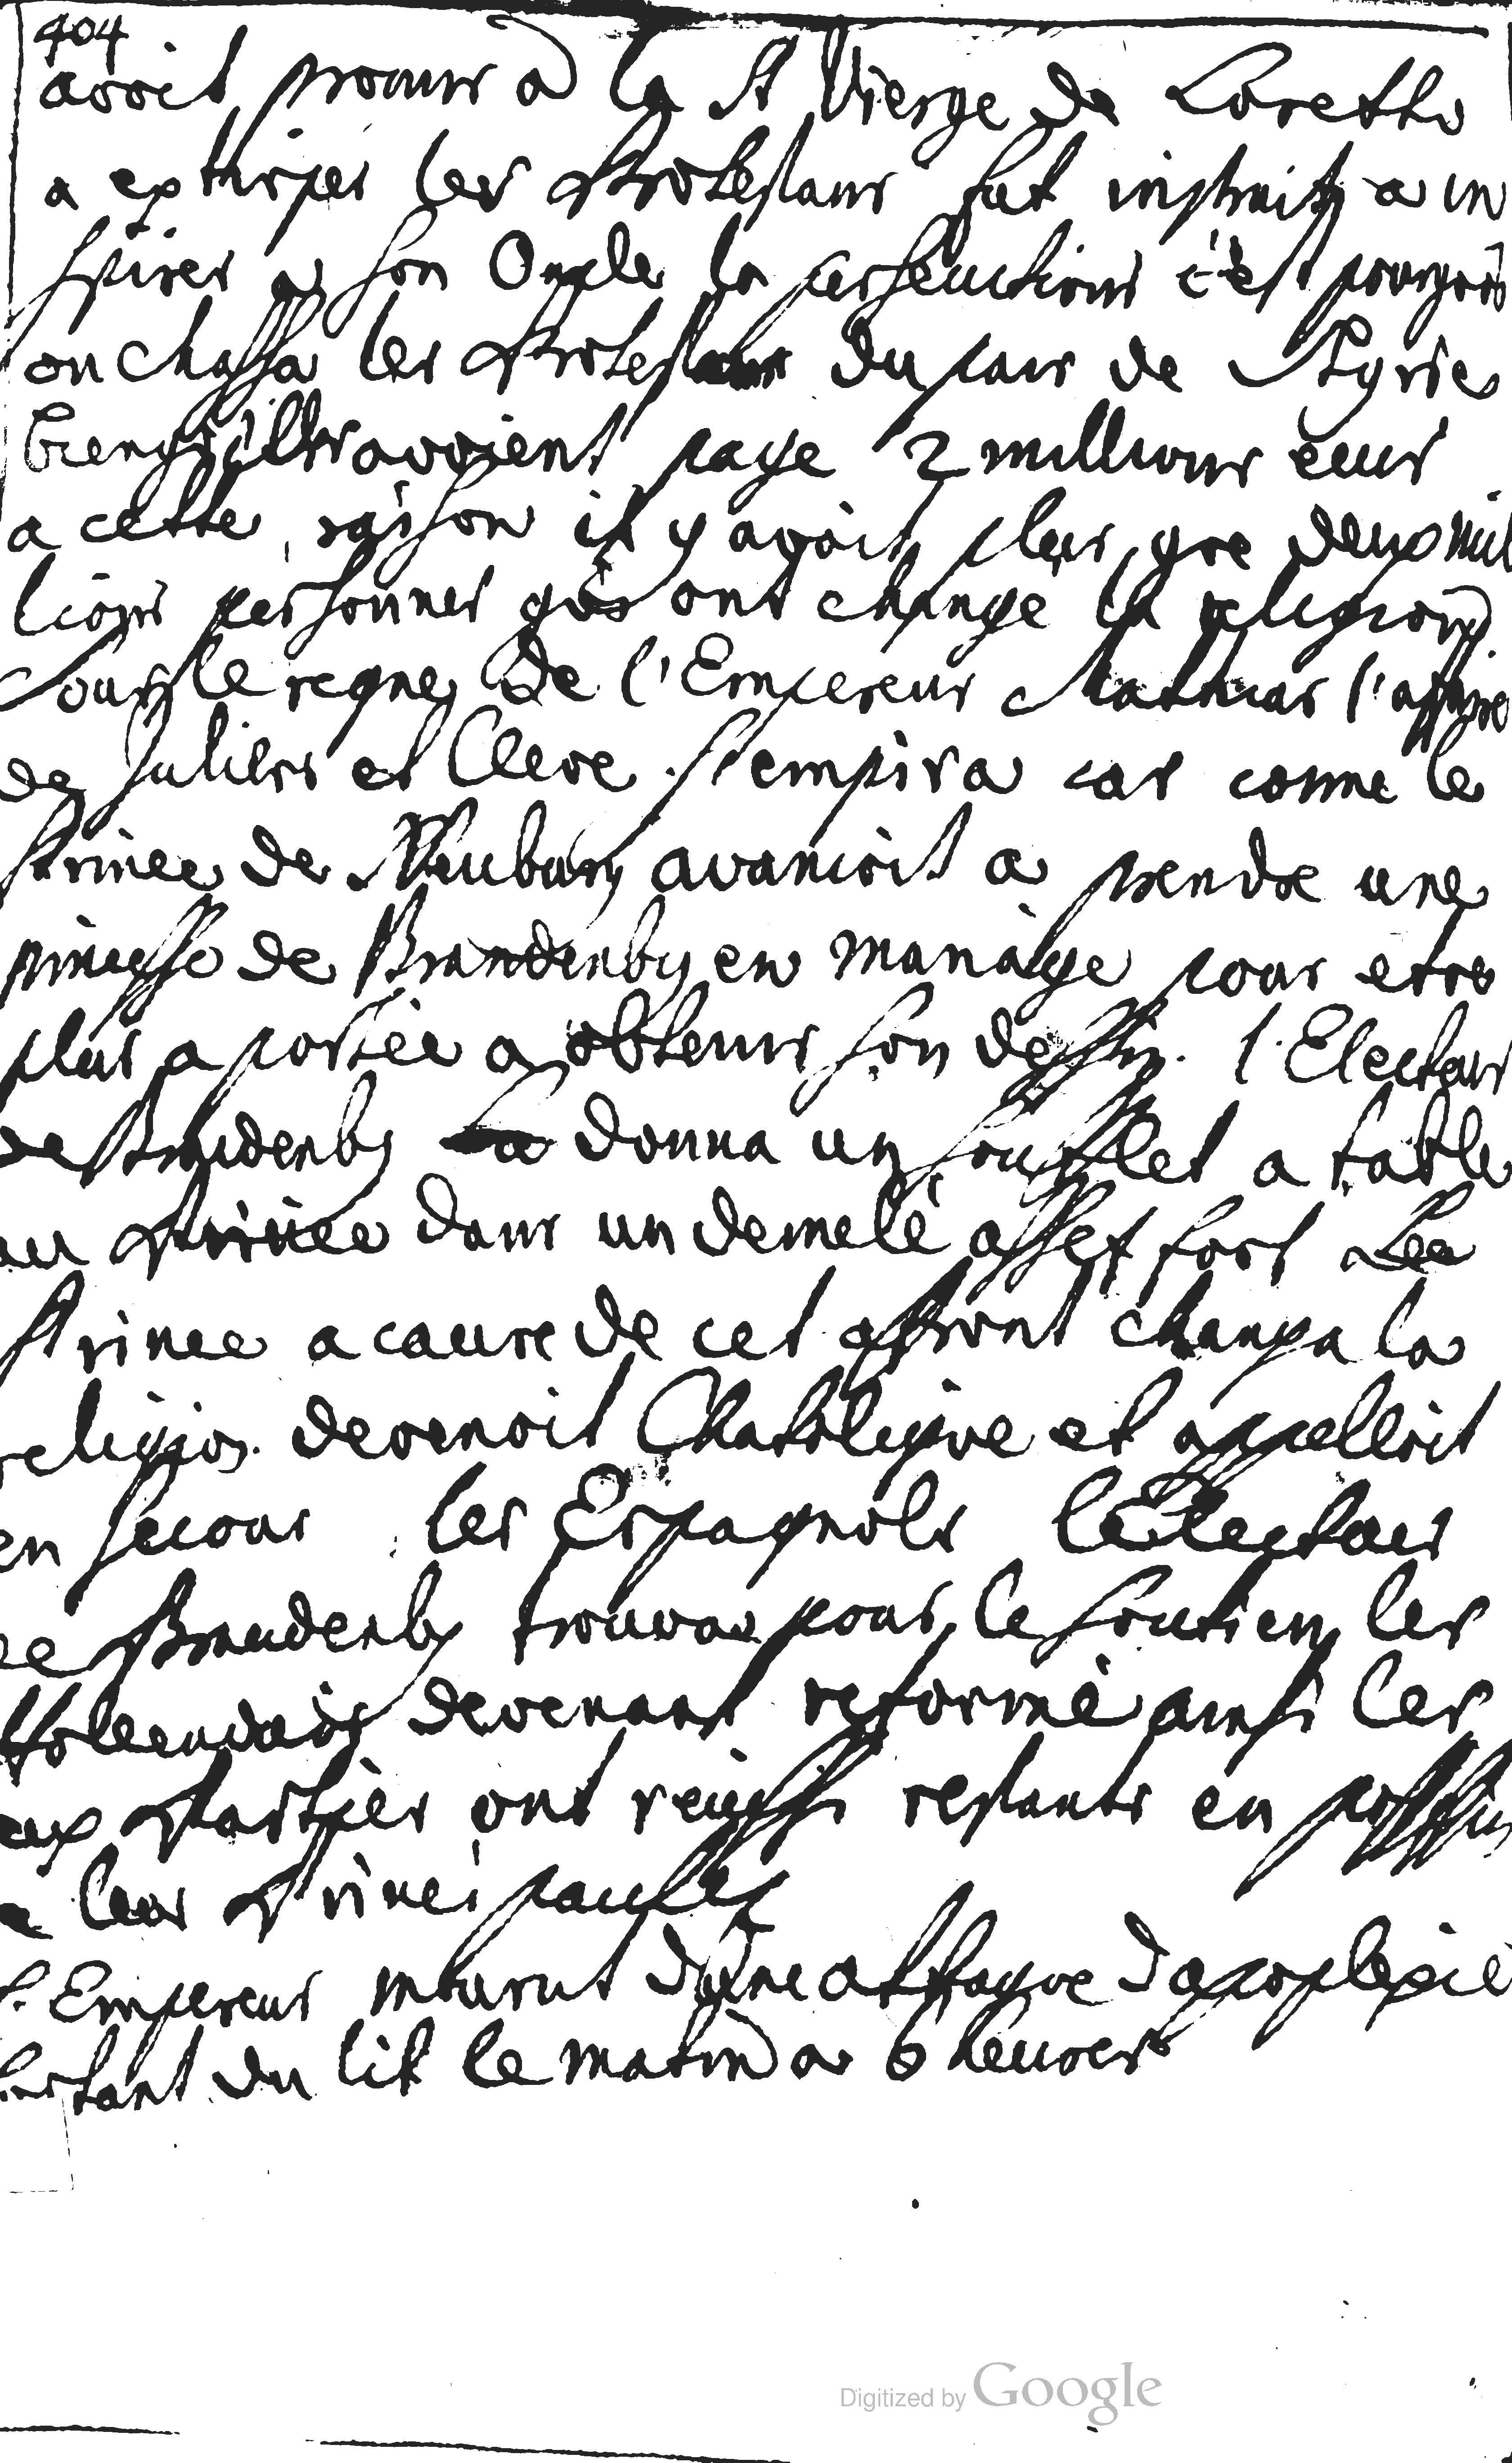 404
avoit promis a la St Vierge de Loretto
a extirper les Protestans fut instruit a in
spirer a son Oncle la persecutions c'est pourquoi
on chassa les Protestans du pais de Styrie
bienqu'ils avoient paye 2 millions ecus
a cette raison il y avoit plus que deux mil
lions personnes qui ont change la religion
Sous le regne de l'Empereur Mathias l'affaire
de Juliers et Cleve s'empira car comme le
Prince de Neuburg avancoit a prendre une
princesse de Brandenbg en mariage pour etre
plus a portée a obtenir son dessin. l'Electeur
de Brandenbg donna un soufflet a table
au Prince dans un demelé assez fort Le
Prince a cause de cet affront changa la
religion devenoit Chatolique et appelloit
en secour les Espagnols l'Electeur
de Brandenbg trouva pour le soutien les
Hollendois devenant reformé ainsi les
eux Partier ont reussi restants en
leur Principautez
l'Empereur mourut d'une attaque d'apoplexie
sortant du lit le matin a 6 heures
Digitized by Google